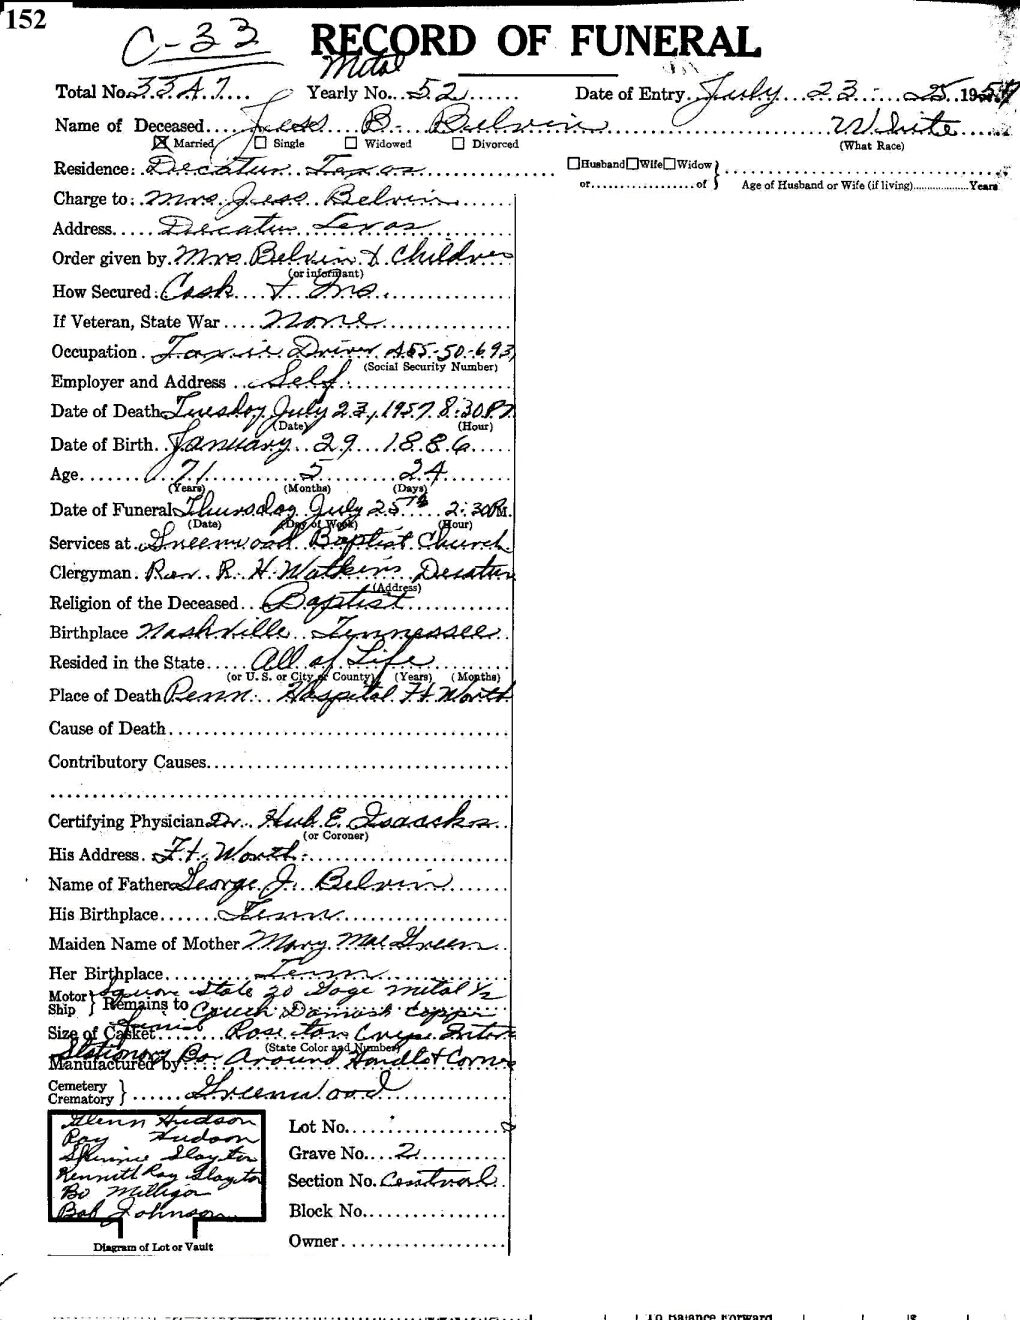 152
C-33 RECORD OF FUNERAL
Metal
Total No. 3347 Yearly No. 52 Date of Entry July 23 - 25 1957
Name of Deceased Jess B. Belvin White
☒ Married ☐ Single ☐ Widowed ☐ Divorced (What Race)
Residence: Decatur Texas ☐Husband☐Wife☐Widow
or of Age of Husband or Wife (if living) Years
Charge to: Mrs. Jess Belvin
Address Decatur Texas
Order given by Mrs. Belvin & Children
(or informant)
How Secured: Cash & Ins.
If Veteran, State War None
Occupation Taxie Driver 455-50-693
(Social Security Number)
Employer and Address Self
Date of Death Tuesday July 23, 1957 8:30 P.
(Date) (Hour)
Date of Birth January 29 1886
Age 71 5 24
(Years) (Months) (Days)
Date of Funeral Thursday July 25th 2:30 P.M.
(Date) (Day of Week) (Hour)
Services at Greenwood Baptist Church
Clergyman Rev. R. H. Watkins Decatur
(Address)
Religion of the Deceased Baptist
Birthplace Nashville Tennessee
Resided in the State All of Life
(or U. S. or City or County) (Years) (Months)
Place of Death Penn. Hospital Ft Worth
Cause of Death
Contributory Causes
Certifying Physician Dr. Hub E. Isaacks
(or Coroner)
His Address Ft. Worth
Name of Father George J. Belvin
His Birthplace Tenn
Maiden Name of Mother Mary Mae Green
Her Birthplace Tenn
Square State 20 Gage metal ½
Motor Ship Remains to Couch
Size of Casket Rose tan Crepe Inter
(State Color and Number)
Stationary Bar Around Handle & Corner
Manufactured by
Cemetery Crematory Greenwood
Glenn Hudson
Ray Hudson
Slayton
Kenneth Ray Slayton
Bo Milligan
Bob Johnson
Diagram of Lot or Vault
Lot No.
Grave No. 2
Section No. Central
Block No.
Owner
To Balance Forward $